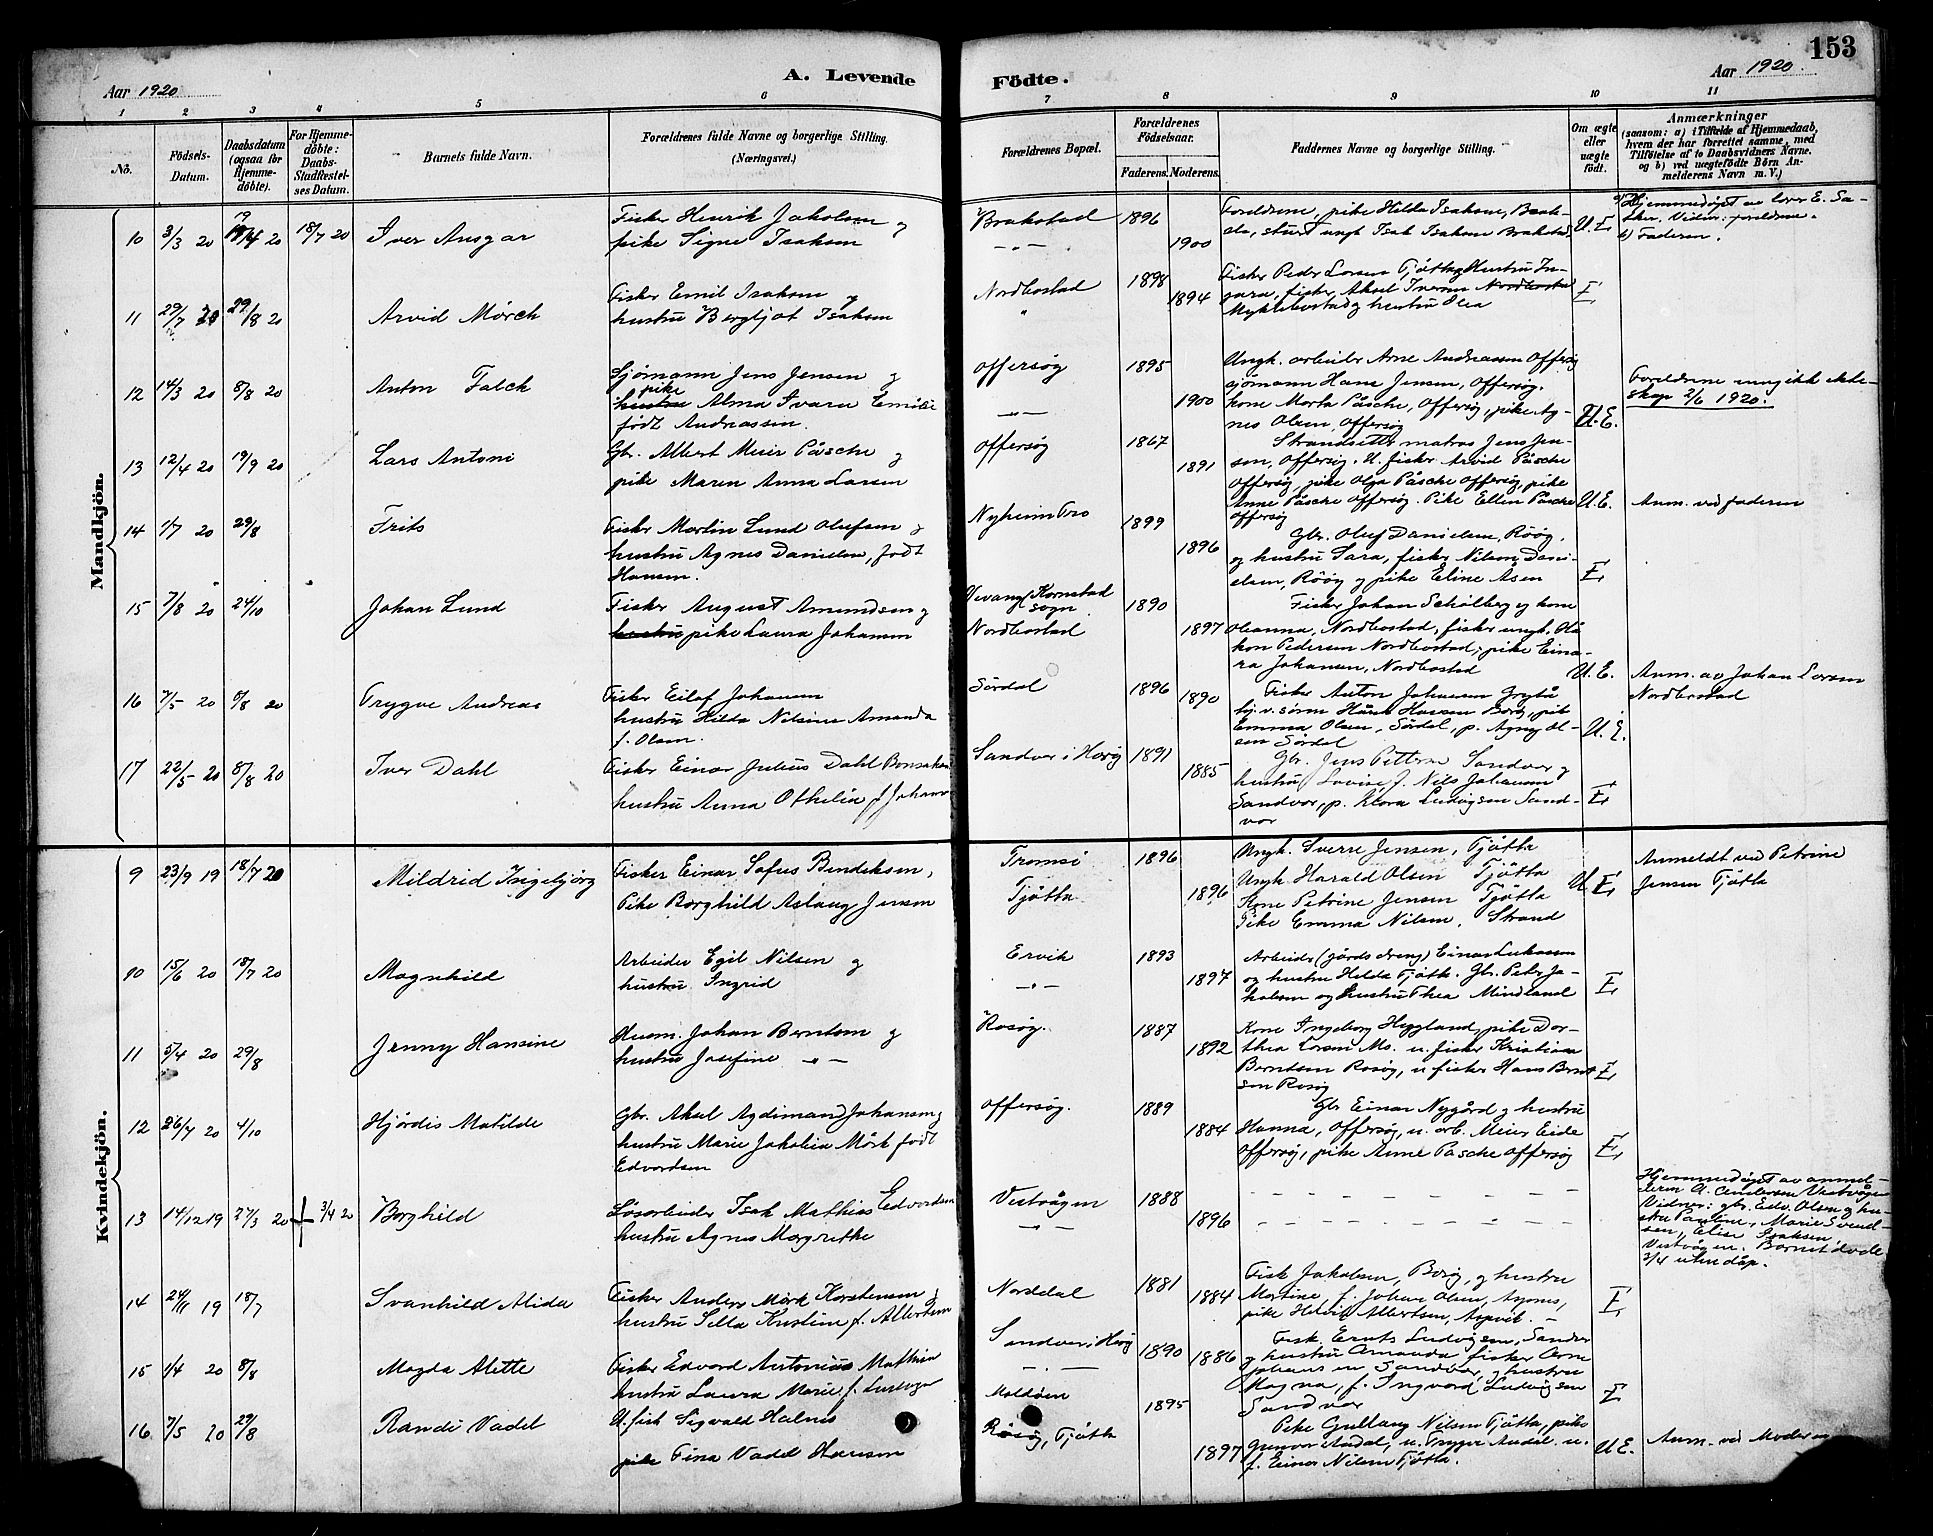 153
Aar 1920
A. Levende
Födte.
Aar 1920
1 2 3 4 5 6 7 8 9 10 11
No.
Födsels-Datum.
Daabsdatum (ogsaa for Hjemme-döbte).
For Hjemme-döbte: Daabs-Stadfæstel-ses Datum.
Barnets fulde Navn.
Forældrenes fulde Navne og borgerlige Stilling.
(Næringsvei.)
Forældrenes Bopæl.
Forældrenes Födselsaar.
Faderens. Moderens.
Faddernes Navne og borgerlige Stilling.
Om ægte eller uægte födt.
Anmærkninger
(saasom: a) i Tilfælde af Hjemmedaab,
hvem der har forrettet samme, med
Tilföielse af to Daabsvidners Navne.
og b) ved uægtefödte Börn An-
melderens Navn m. V.)
Mandkjön.
10 3/3 20 20 18/7 20 Iver Ansgar
Fisker Henrik Jakobsen og
pike Signe Isaksen
Brakstad 1896
- " - 1900
Foreldrene, pike Hilda Isaksen, Brak-
U. E
Hjemmedøpt av
b) Faderen.
11 29/7 20 29/8 20 Arvid Mörch
Fisker Emil Isaksen
hustru Bergljot Isaksen
Nordbostad 1898
" 1894
Fisker Peder Larsen Tjøtta og Hustru In-
gara, fisker Aksel Iversen Nordbostad
Myklebostad og hustru Olea
E
12 14/3 20 8/8 20 Anton Falch
Sjömann Jens Jensen og
pike
hustru Alma Ivara Emilie
født Andreassen.
Offersøg 1895
- " - 1900
Ungk. arbeider Arne Andreassen Offersøg
sjömann Hans Jensen, Offersøg.
kone Marta Påsche, Offersøg, pike Ag-
nes Olsen, Offersøg
U. E.
Foreldrene inngikk ekte-
skap 2/6 1920.
13 12/4 20 19/9 20 Lars Antoni
Gbr. Albert Meier Påsche og
pike Maren Anna Larsen
Offersøg 1867
1891
Strandsitter matros Jens Jen-
sen, Offersøg. U. fisker Arvid Påsche
Offersøg, pike Olga Påsche Offersøg, pike
Anne Påsche Offersøg. Pike Ellen Påsche
Offersøg
U. E. Anm. ved faderen
14 1/7 20 29/8 Frits
Fisker Martin Lund Olufsen og
hustru Agnes Danielsen, født
Hansen.
Nyheim Tro 1899
1896
Gbr. Oluf Danielsen, Røøg.
og hustru Sara, fisker Nilsen Dani-
elsen, Røøg og pike Eline Asen
E
15 7/8 20 24/10 Johan Lund
Fisker August Amundsen og
hustru pike Laura Johansen
Vevang Kornstad
sogn 1890
Nordbostad 1897
Fisker Johan Schølberg og kone
Oleanna, Nordbostad, fisker ungk. Hå-
kon Pedersen Nordbostad, pike Eina-
ra Johansen, Nordbostad
U. E. Anm. av Johan Larsen
Nordbostad
16 7/5 20 8/8 20 Trygve Andreas
Fisker Eilof Johansen
hustru Hilda Nilsine Amanda
f. Olsen.
Sördal 1896 1890
Fisker Anton Johansen
Emma Olsen, Sördal, p. Agnes Ol-
sen Sördal
U. E.
17 22/5 20 8/8 20 Iver Dahl
Fisker Einar Julius Dahl
hustru Anna Othelia f. Johans
Sandvær i Herøy 1891
1885
Gbr. Jens Pettersen Sandvær og
hustru Lovise, f. Nils Johansen
Sandvær, p. Klara Ludvigsen Sand-
vær
E
Kvindekjön.
9 23/9 19 18/7 20 Mildrid Ingebjørg
Fisker Einar Sofus Bendiksen,
Pike Borghild Aslaug Jensen
Tromsö 1896
Tjøtta 1896
Ungk. Sverre Jensen, Tjøtta
Ungk. Harald Olsen Tjøtta
Kone Petrine Jensen Tjøtta
Pike Emma Nilsen, Strand
U E. Anmeldt ved Petrine
Jensen Tjøtta
10 15/6 20 18/7 20 Magnhild
Arbeider Egil Nilsen og
hustru Ingrid
Ervik 1893
- " - 1897
Arbeider (gårdsdreng) Einar Lukassen
og hustru Hilda Tjøtta. Gbr. Peter Ja-
kobsen og hustru Thea Mindland
E
11 5/4 20 29/8 Jenny Hansine
Husm. Johan Berntsen og
hustru Josefine - " -
Rosøg. 1887
1892
Kone Ingeborg Heggland, pike Dor-
thea Larsen Mo. u. fisker Kristian
Berntsen Rosøg, u fisker Hans Bernt
sen Rosøg
E
12 26/7 20 4/10 Hjördis Matilde
Gbr. Aksel Agdimand Johansen og
hustru Marie Jakobine Mörk født
Edvardsen
Offersøg. 1889
1884
Gbr Einar Nygård og hustru
Hanna, Offersøg, u. arb. Meier Eide
Offersøg, pike Anne Påsche Offersøg
E
13 14/12 19 27/3 20 † 3/4 20 Borghild
Løsarbeider Isak Mathias Edvardsen
hustru Agnes Margrethe
Vestvågen 1888
- " - 1896
Hjemmedøpt av anmel-
deren A. Andersen Vestvågen
Vidner: gbr. Edv. Olsen og hu-
stru Pauline, Marie Svend-
sen, Elise Isaksen,
Vestvågen. Barnet døde
3/4 uten dåp.
14 29/11 19 18/7 Svanhild Alida
Fisker Anders Mörk Karstensen og
hustru Silla Kristine f. Albertsen
Norddal 1881
1884
Fisk Jakobsen, Borg, og hustru
Martine, f. Johan Olsen,
pike Helvik Albertsen,
E
15 1/4 20 8/8 Magda Alette
Fisker Edvard Antonius Mathisen
hustru Laura Marie f. Ludvigsen
Sandvær i Herøy 1890 1886
- " -
Fisk. Ernts Ludvigsen, Sandvær
og hustru Amanda, fisker Arne
Johansen Sandvær, og hustru
Magna, f. Ingvard Ludvigsen
Sandvær
E
16 7/5 20 29/8 Randi Vadel
U. fisk Sigvald Halnes
pike Tina Vadel Hansen
1895
Røsøg, Tjøtta 1897
Pike Gullaug Nilsen Tjøtta, pike
Gunvor Aadal, u. Trygve Aadal. u.
f. Einar Nilsen Tjøtta.
U E. Anm. ved Moderen